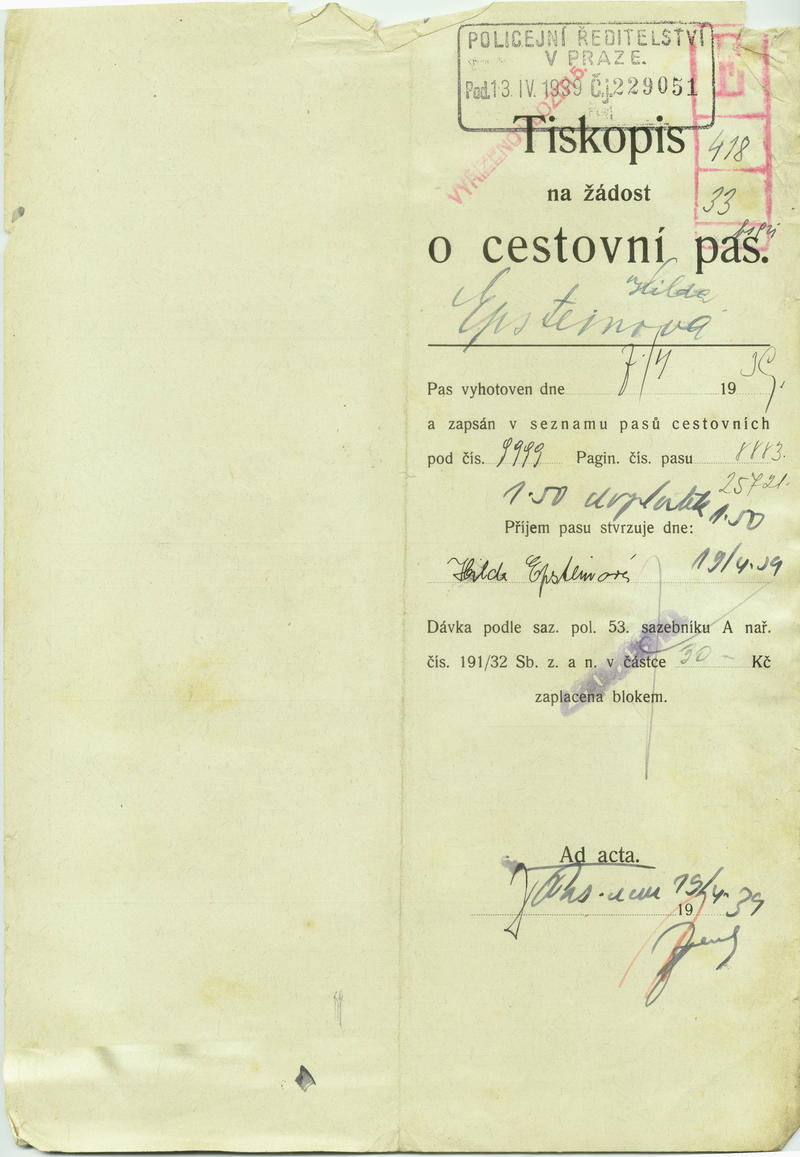 POLICEJNÍ ŘEDITELSTVÍ
V PRAZE.
Pod. 13. IV. 1939 Č.j. 229051
VYŘÍZENO
418
33
Tiskopis
na žádost
o cestovní pas.
Hilda
Epsteinová
Pas vyhotoven dne 7/4 1939.
a zapsán v seznamu pasů cestovních
pod čís. 9999 Pagin. čís. pasu 8883.
25721.
1.50 doplatek 1.50
Příjem pasu stvrzuje dne:
Hilda Epsteinová 19/4.39
Dávka podle saz. pol. 53. sazebníku A nař.
čís. 191/32 Sb. z. a n. v částce 30 – Kč
zaplacena blokem.
Ad acta.
19/4. 1939